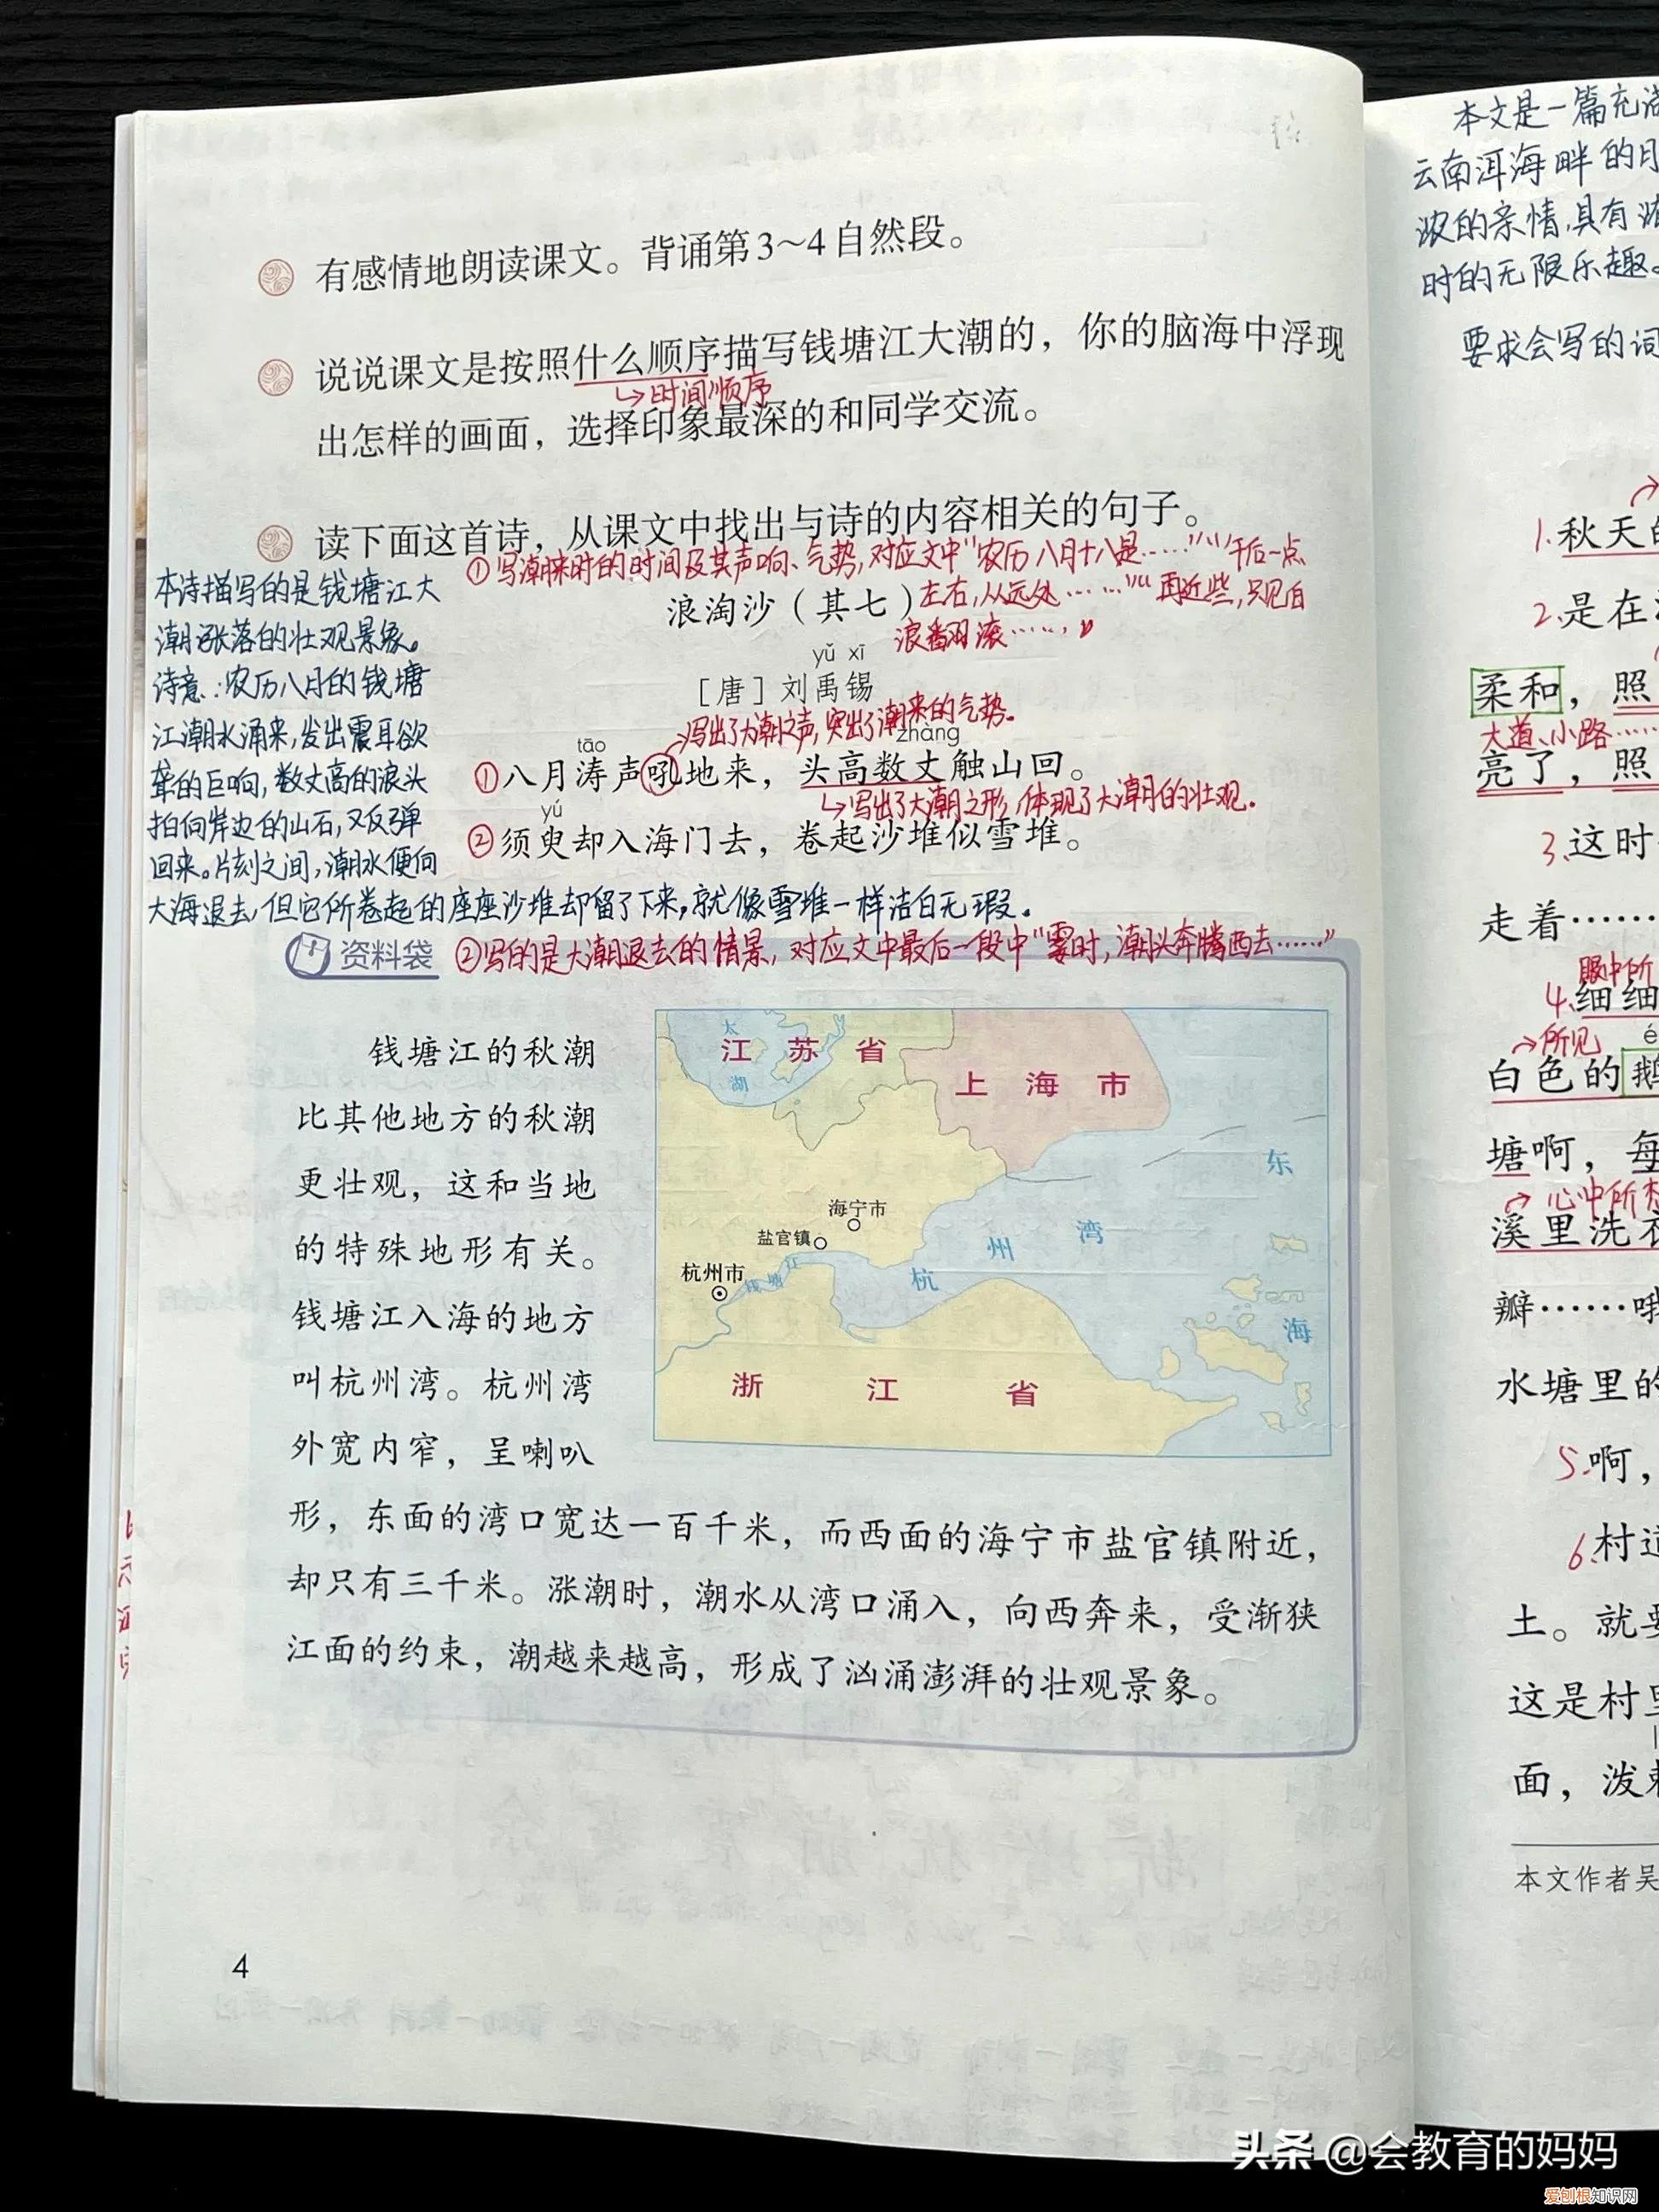 有感情地朗读课文。背诵第3～4自然段。
说说课文是按照什么顺序描写钱塘江大潮的，你的脑海中浮现
↳时间顺序
出怎样的画面，选择印象最深的和同学交流。
读下面这首诗，从课文中找出与诗的内容相关的句子。
①写潮来时的时间及其声响、气势，对应文中“农历八月十八是……”“午后一点
左右，从远处……”“再近些，只见白
浪翻滚……”
浪淘沙（其七）
yǔ xī
［唐］刘禹锡
→写出了大潮之声，突出了潮来的气势。
tāo
zhàng
①八月涛声吼地来，头高数丈触山回。
↳写出了大潮之形，体现了大潮的壮观。
yú
②须臾却入海门去，卷起沙堆似雪堆。
本诗描写的是钱塘江大
潮涨落的壮观景象。
诗意：农历八月的钱塘
江潮水涌来，发出震耳欲
聋的巨响，数丈高的浪头
拍向岸边的山石，又反弹
回来。片刻之间，潮水便向
大海退去，但它所卷起的座座沙堆却留了下来，就像雪堆一样洁白无瑕。
资料袋
②写的是大潮退去的情景，对应文中最后一段中“霎时，潮头奔腾西去……”
钱塘江的秋潮
比其他地方的秋潮
更壮观，这和当地
的特殊地形有关。
钱塘江入海的地方
叫杭州湾。杭州湾
外宽内窄，呈喇叭
形，东面的湾口宽达一百千米，而西面的海宁市盐官镇附近，
却只有三千米。涨潮时，潮水从湾口涌入，向西奔来，受渐狭
江面的约束，潮越来越高，形成了汹涌澎湃的壮观景象。
太湖
江苏省
上海市
东海
海宁市
盐官镇
杭州市
钱塘江
杭州湾
浙江省
4
本文是一篇充
云南洱海畔的月
浓的亲情，具有浓
时的无限乐趣。
要求会写的词
1.秋天的
2.是在
柔和，照
大道、小路……
亮了，照
3.这时
走着……
眼中所
4.细细
→所见
白色的鹅
塘啊，每
→心中所想
溪里洗衣
瓣……哦
水塘里的
5.啊，
6.村道
土。就要
这是村里
面，泼剌
本文作者吴
头条 @会教育的妈妈
爱刨根知识网